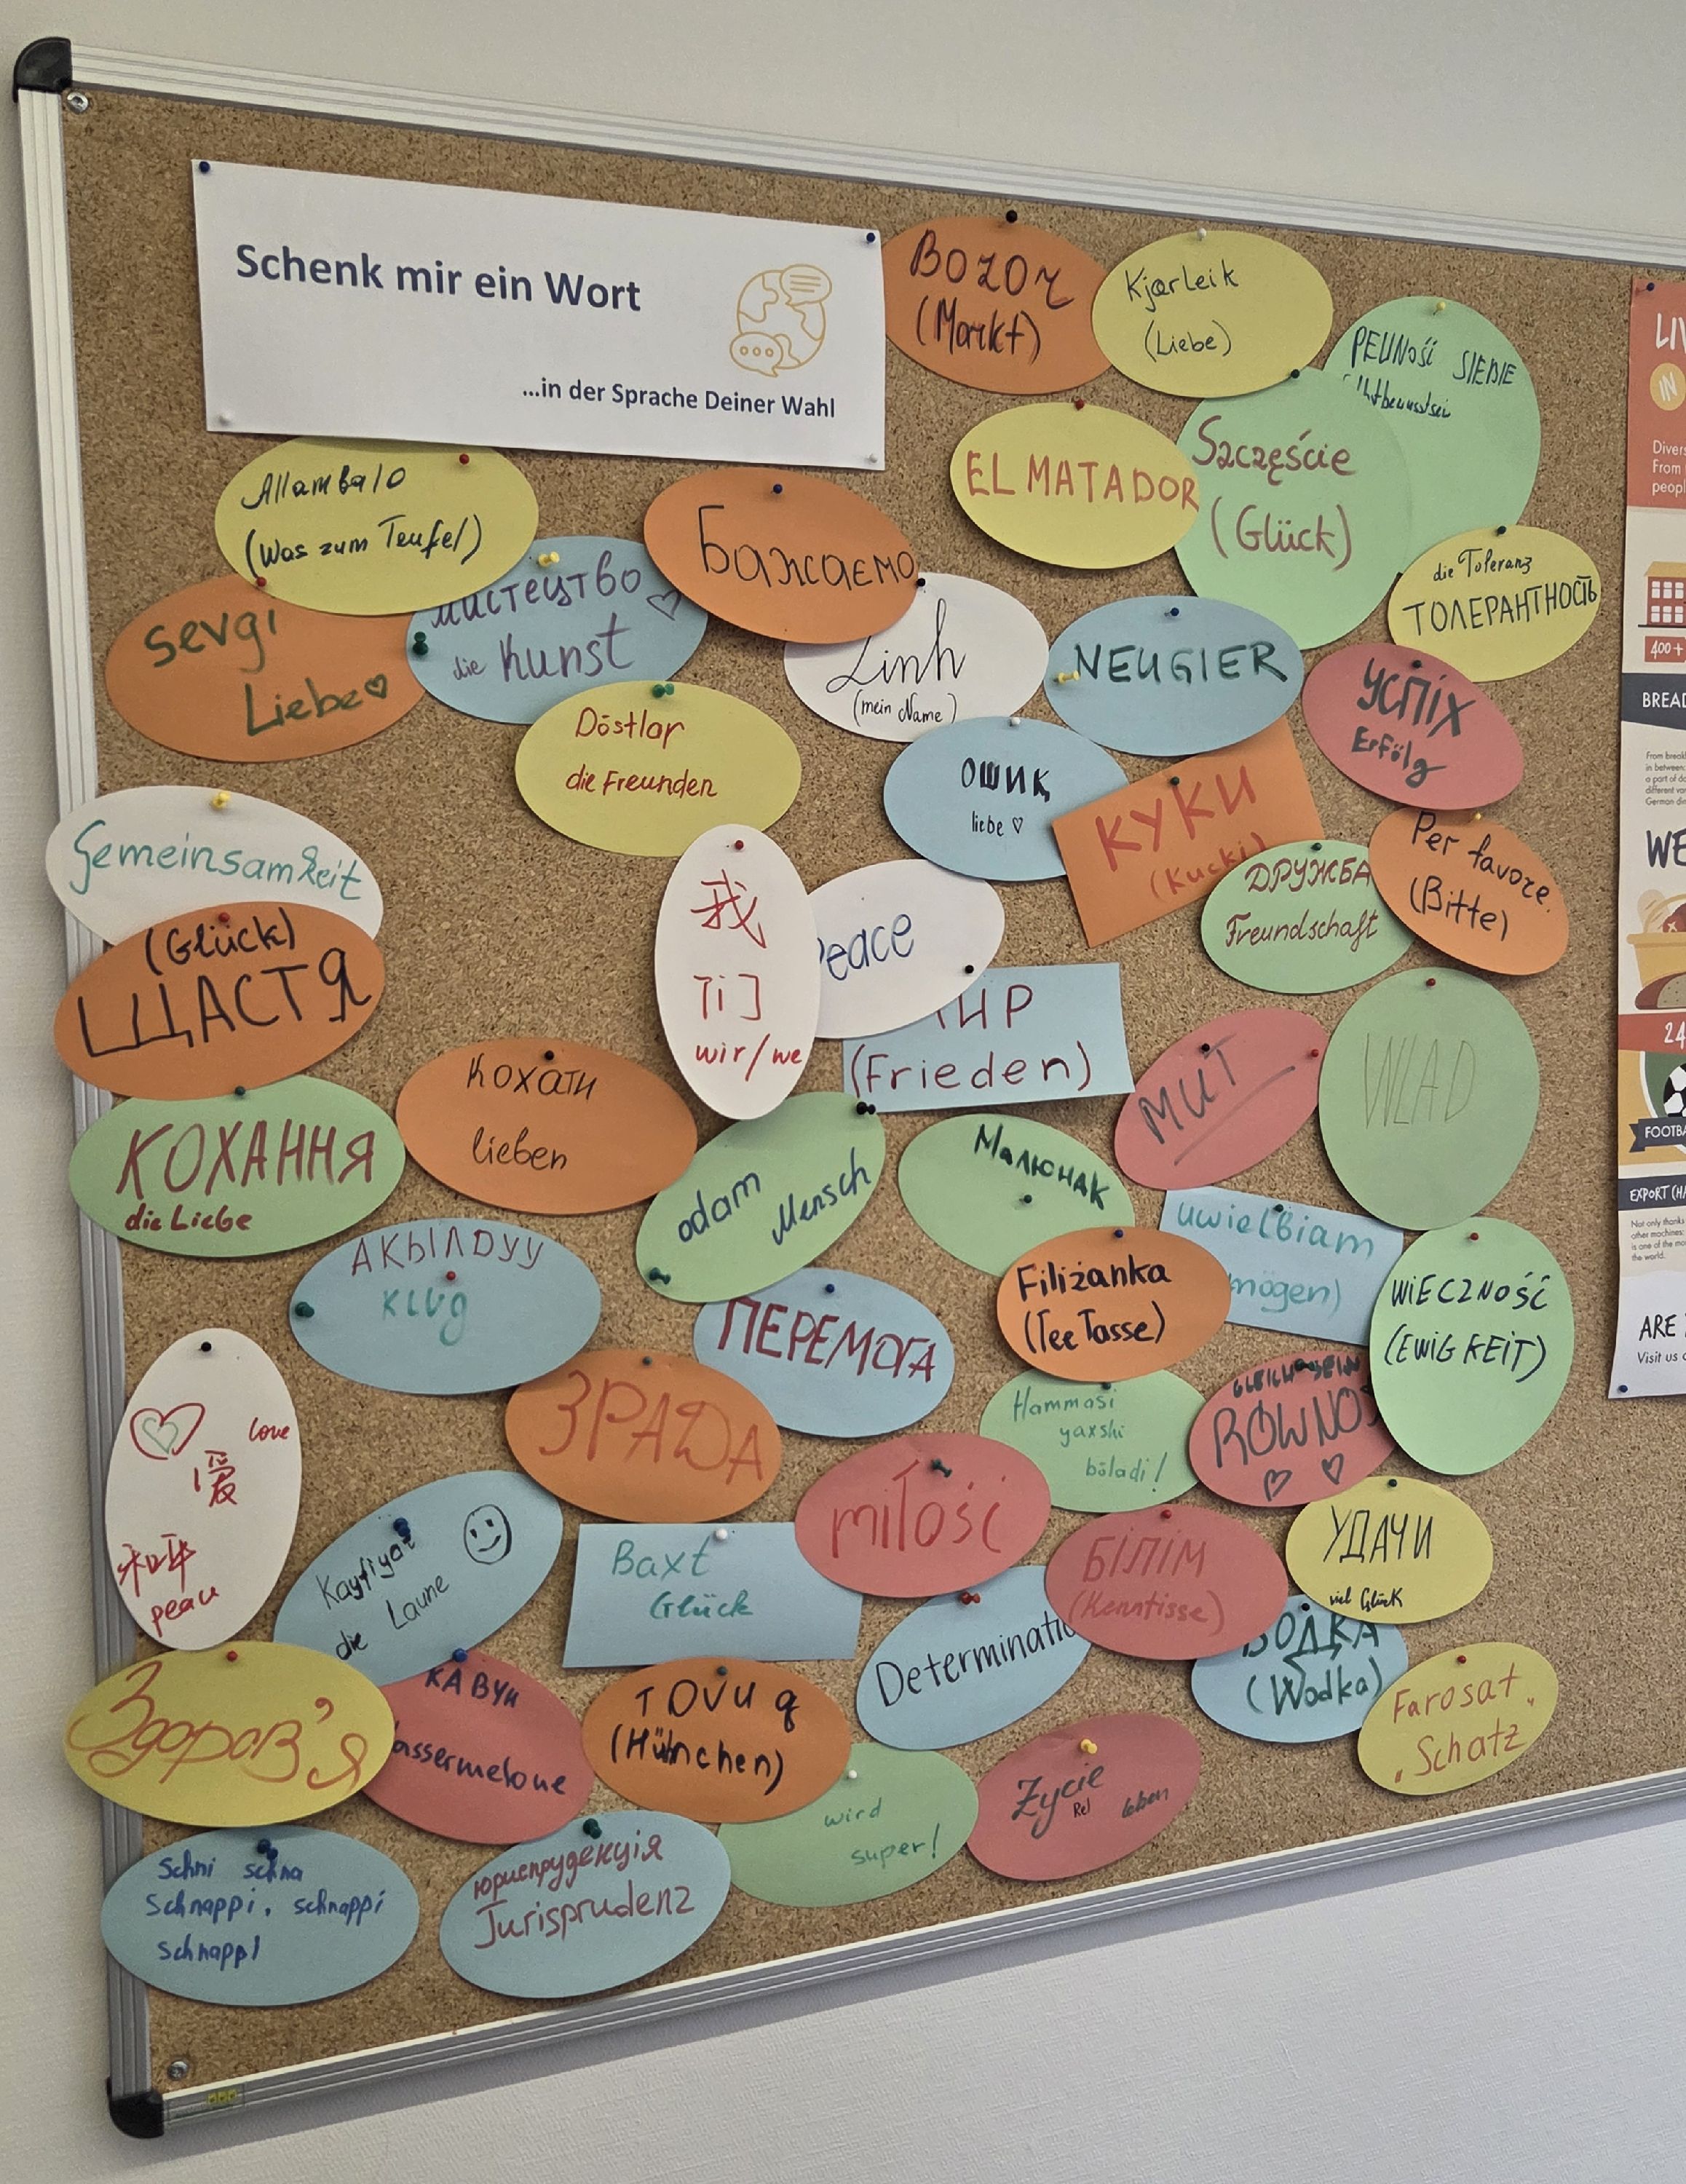 Schenk mir ein Wort
...in der Sprache Deiner Wahl
Bozor
(Markt)
Kjærleik
(Liebe)
PEWNOŚĆ SIEBIE
EL MATADOR
Szczęście
(Glück)
Allambalo
(Was zum Teufel)
Бажаємо
die Toleranz
ТОЛЕРАНТНОСТЬ
sevgi
Liebe
мистецтво
die Kunst
Linh
(mein Name)
NEUGIER
УСПІХ
Erfolg
Döstlar
die Freunden
ОШИҚ
liebe
КУКИ
(Kucki)
Per favore.
(Bitte)
ДРУЖБА
Freundschaft
Gemeinsamkeit
(Glück)
ЩАСТЯ
我
们
wir/we
Peace
(Frieden)
МИТ
WLAD
Кохати
lieben
КОХАННЯ
die Liebe
odam
Mensch
Малюнак
uwielbiam
mögen)
АКЫЛДУУ
klug
ПЕРЕМОГА
Filiżanka
(Tee Tasse)
WIECZNOŚĆ
(EWIGKEIT)
ЗРАДА
Hammasi
yaxshi
bòladi!
GLEICH SEIN
RÓWNOŚ
love
爱
peace
Kayfiyat
die Laune
Baxt
Glück
miłość
БІЛІМ
(Kenntisse)
УДАЧИ
viel Glück
Determinatio
ВОДКА
(Wodka)
Здоров'я
КАВУН
assermelone
Tovuq
(Hühnchen)
Farosat
Schatz
wird
super!
Życie
Rel
leben
Schni schna
Schnappi. schnappi
schnappi
юриспруденция
Jurisprudenz
400+
BREAD
WE
24
FOOTBA
ARE
Visit us